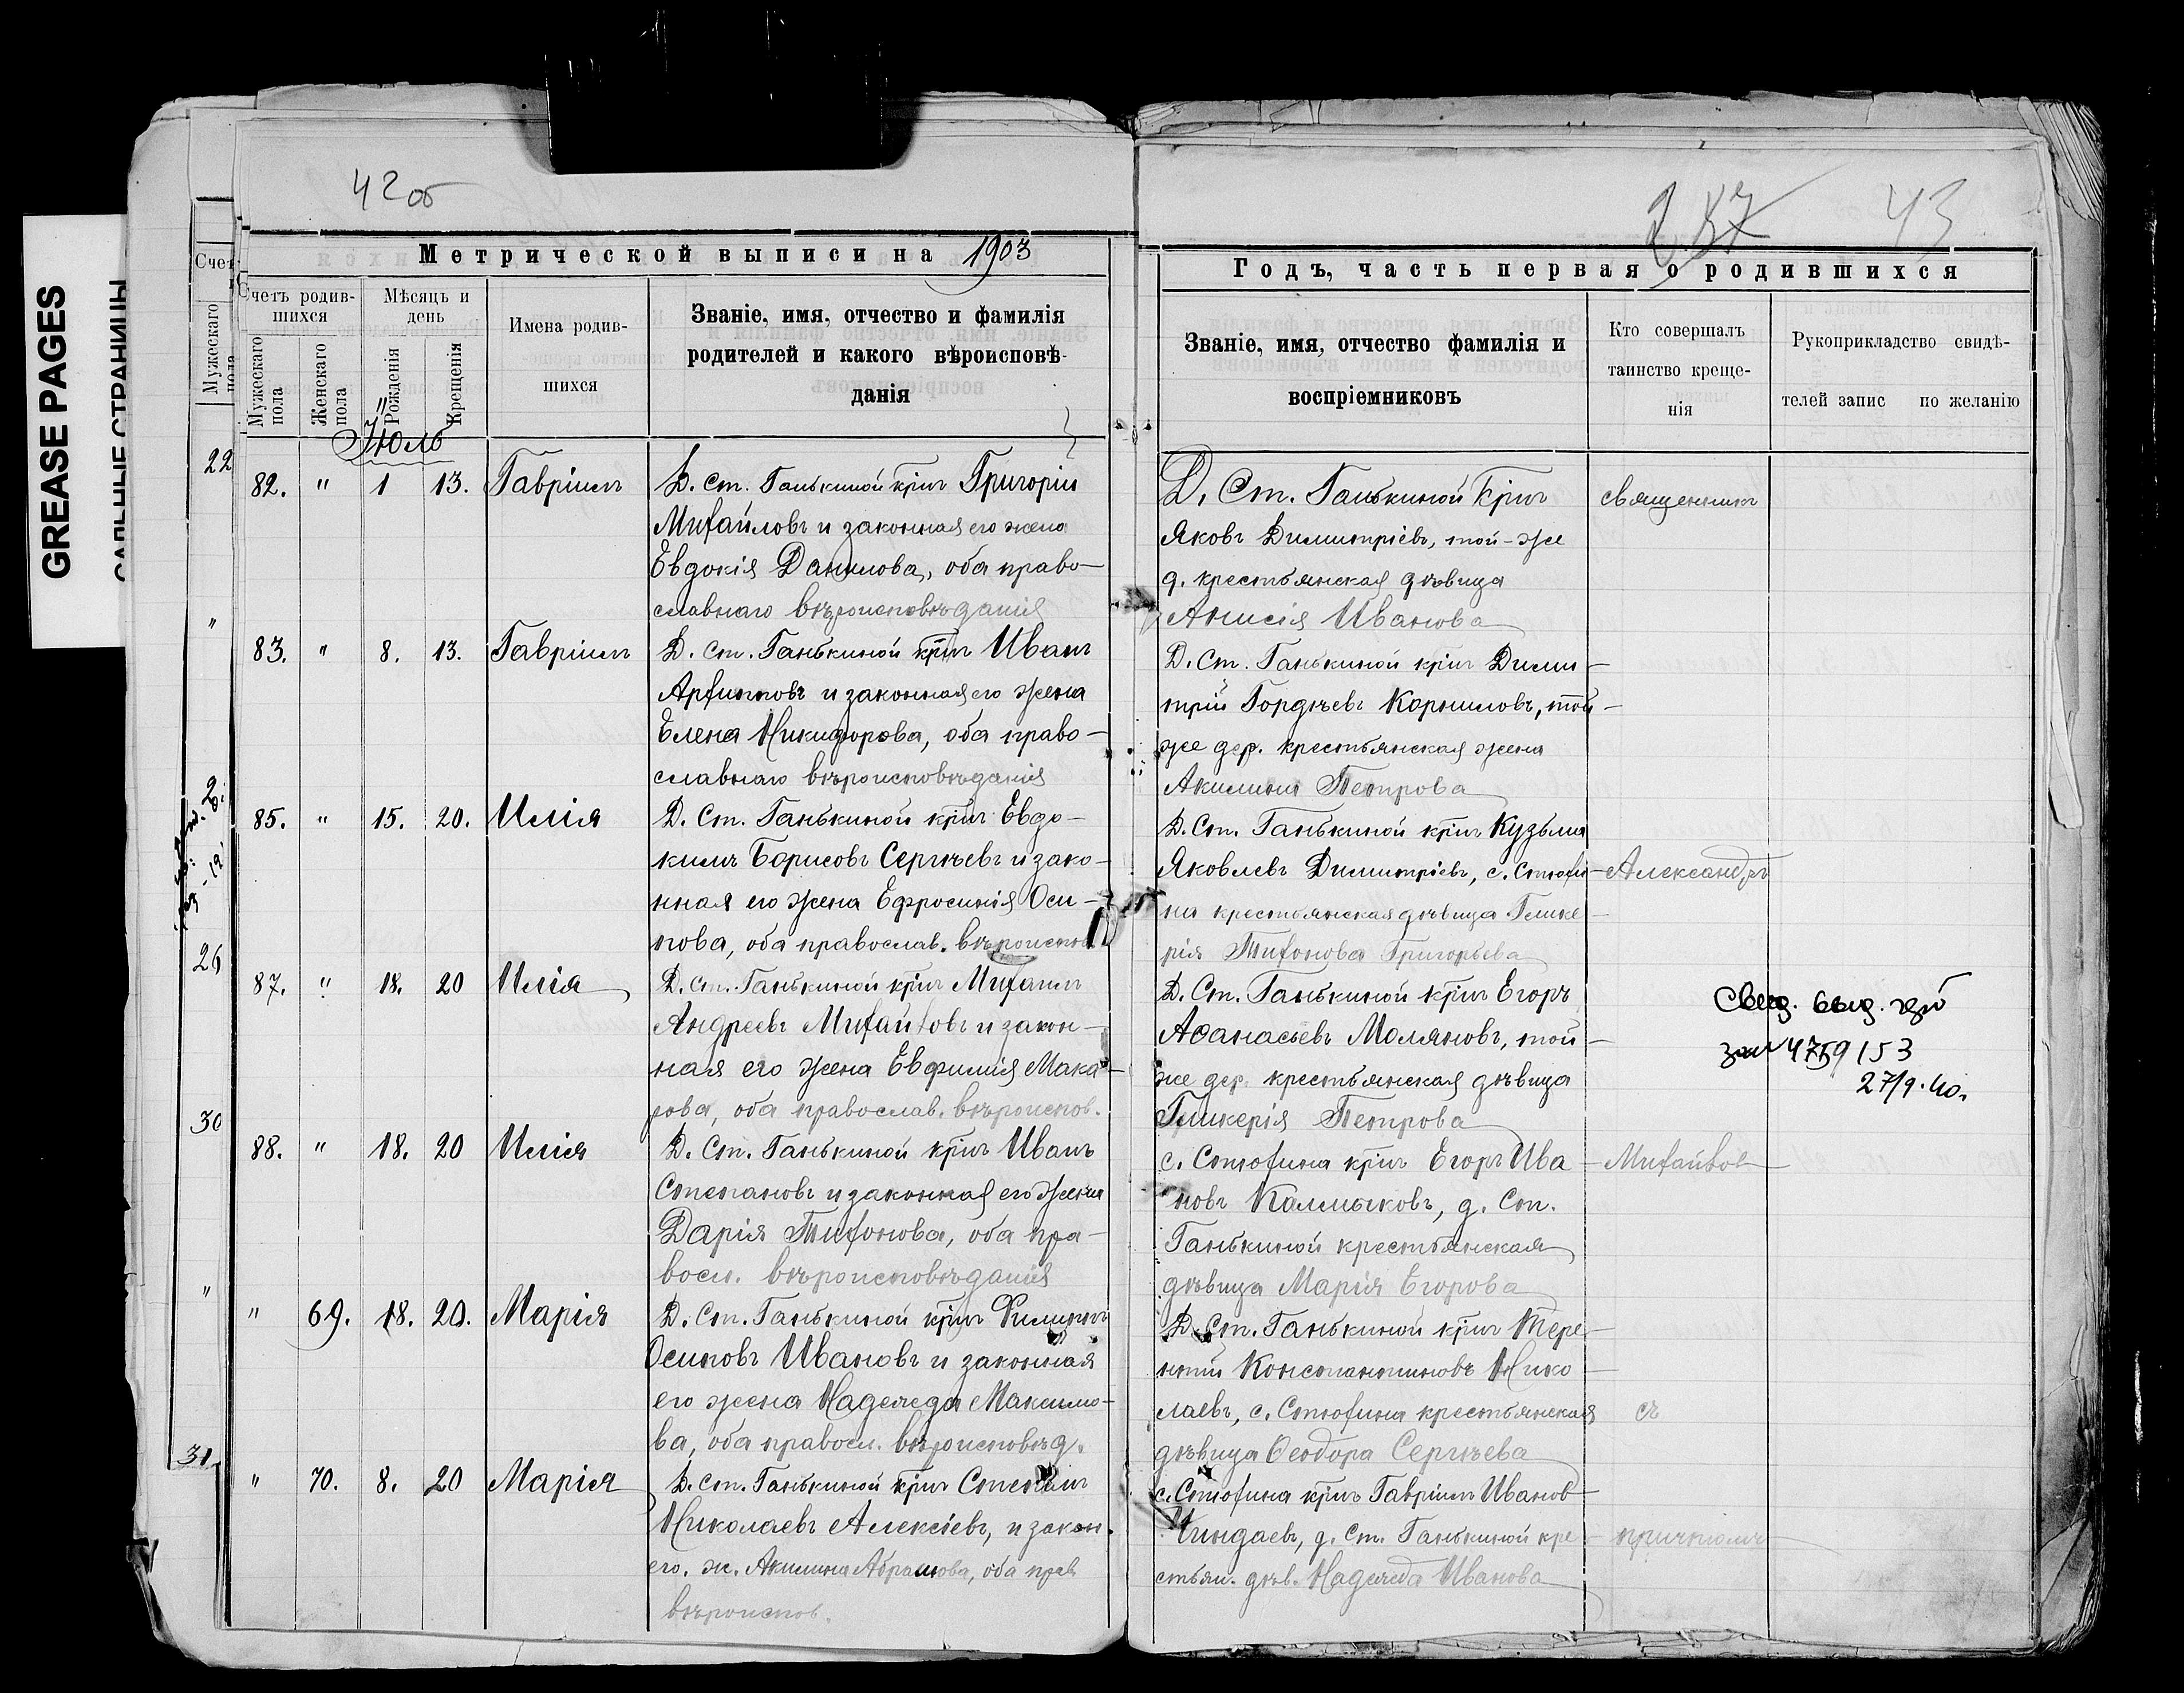 GREASE PAGES
САЛЬНЫЕ СТРАНИЦЫ
42об
Метрической выписи на 1903
Счетъ родив-
шихся
Мѣсяцъ и
день
Имена родив-
шихся
Званіе, имя, отчество и фамилія
родителей и какого вѣроисповѣ-
данія
Мужескаго
пола
Женскаго
пола
Рожденія
Крещенія
Счет
Мужескаго
пола
22
"
26
30
"
31
Іюль
82. " 1 13. Гавріилъ Д. Ст. Ганькиной кр͞нъ Григорій
Михайловъ и законная его жена
Евдокія Данилова, оба право-
славнаго вѣроисповѣданія
83. " 8. 13. Гавріилъ Д. Ст. Ганькиной кр͞нъ Иванъ
Архиповъ и законная его жена
Елена Никифорова, оба право-
славнаго вѣроисповѣданія
85. " 15. 20. Илія Д. Ст. Ганькиной кр͞нъ Евдо-
кимъ Борисовъ Сергѣевъ и зако-
нная его жена Ефросинія Оси-
пова, оба православ. вѣроиспов.
87. " 18. 20 Илія Д. Ст. Ганькиной кр͞нъ Михаилъ
Андреевъ Михайловъ и закон-
ная его жена Евфимія Мака-
рова, оба православ. вѣроиспов.
88. " 18. 20 Илія Д. Ст. Ганькиной кр͞нъ Иванъ
Степановъ и законная его жена
Дарія Тихонова, оба пра-
восл. вѣроисповѣданія
" 69. 18. 20. Марія Д. Ст. Ганькиной кр͞нъ Филиппъ
Осиповъ Ивановъ и законная
его жена Надежда Максимо-
ва, оба правосл. вѣроисповѣд.
" 70. 8. 20 Марія Д. Ст. Ганькиной кр͞нъ Степанъ
Николаевъ Алексѣевъ, и закон.
его. ж. Акилина Абрамова, оба прав
вѣроиспов.
287 43
Годъ, часть первая о родившихся
Званіе, имя, отчество фамилія и
воспріемниковъ
Кто совершалъ
таинство креще-
нія
Рукоприкладство свидѣ-
телей запис по желанію
Д. Ст. Ганькиной кр͞нъ священникъ
Яковъ Димитріевъ, той-же
д. крестьянская дѣвица
Анисія Иванова
Д. Ст. Ганькиной кр͞нъ Дими-
трій Гордѣевъ Корниловъ, той-
же дер. крестьянская жена
Акилина Петрова
Д. Ст. Ганькиной кр͞нъ Кузьма
Яковлевъ Димитріевъ, с. Стюхи- Александръ
на крестьянская дѣвица Глике-
рія Тихонова Григорьева
Д. Ст. Ганькиной кр͞нъ Егоръ
Аѳанасьевъ Моляновъ, той-
же дер. крестьянская дѣвица
Гликерія Петрова
Свид. выд.
4759153
27/9.40.
с. Стюхина кр͞нъ Егоръ Ива- Михайловъ
новъ Калмыковъ, д. Ст.
Ганькиной крестьянская
дѣвица Марія Егорова
Д. Ст. Ганькиной кр͞нъ Тере-
нтій Константиновъ Нико-
лаевъ, с. Стюхина крестьянская съ
дѣвица Ѳеодора Сергѣева
с. Стюхина кр͞нъ Гавріилъ Иванов
Чиндаевъ, д. Ст. Ганькиной кре- причтомъ
стьян. дѣв. Надежда Иванова